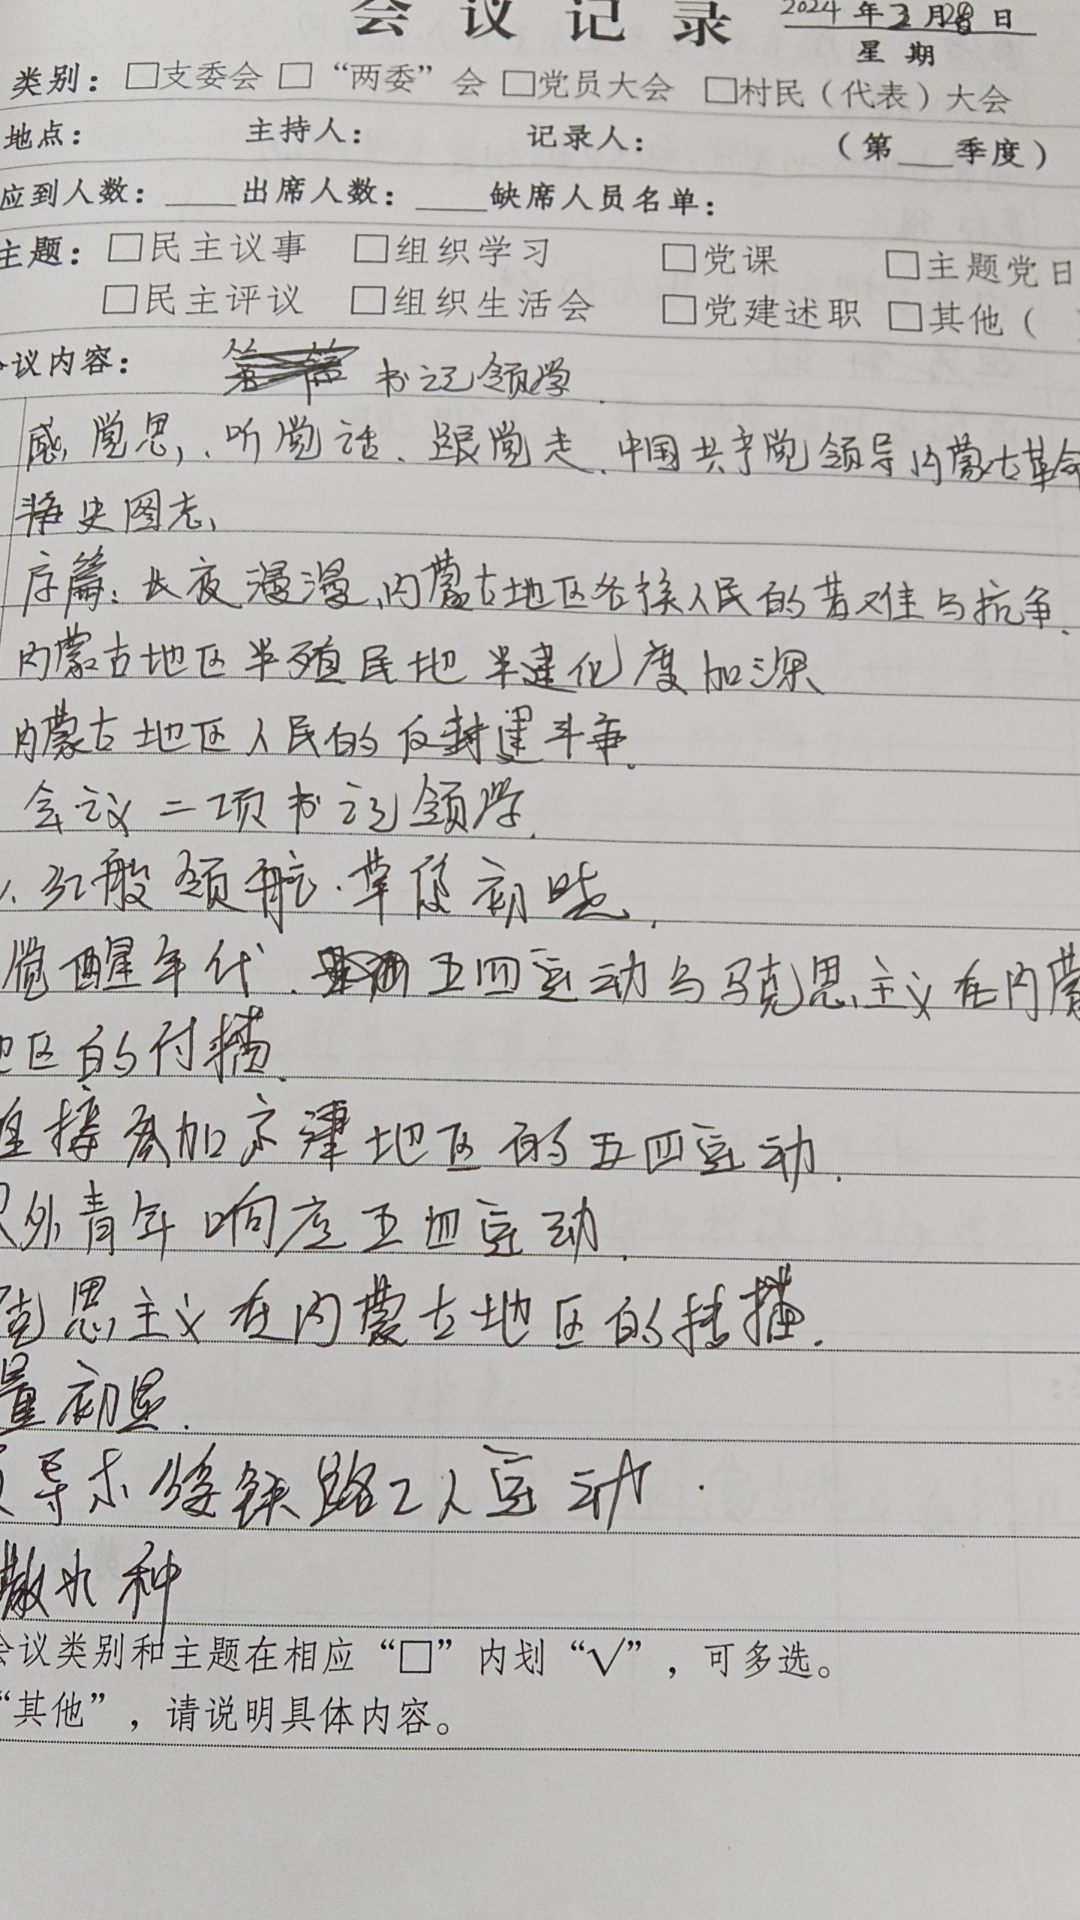 会议记录 2024年 月 日
星期
类别：□支委会 □“两委”会 □党员大会 □村民（代表）大会
地点： 主持人： 记录人： （第___季度）
应到人数：____出席人数：____缺席人员名单：
主题：□民主议事 □组织学习 □党课 □主题党日
□民主评议 □组织生活会 □党建述职 □其他（
议内容： 书记领学.
感党恩、听党话、跟党走、中国共产党领导内蒙古革命
史图志、
序篇：长夜漫漫、内蒙古地区各族人民的苦难与抗争.
内蒙古地区半殖民地半建化度加深
内蒙古地区人民的反封建斗争。
会议二项书记领学.
、红船领航·草原初晓.
觉醒年代. 五四运动与马克思主义在内蒙
地区的付播.
直接参加京津地区的五四运动.
外青年响应五四运动.
克思主义在内蒙古地区的传播.
量初显.
导 绥铁路工人运动.
散火种
会议类别和主题在相应“□”内划“√”，可多选。
“其他”，请说明具体内容。